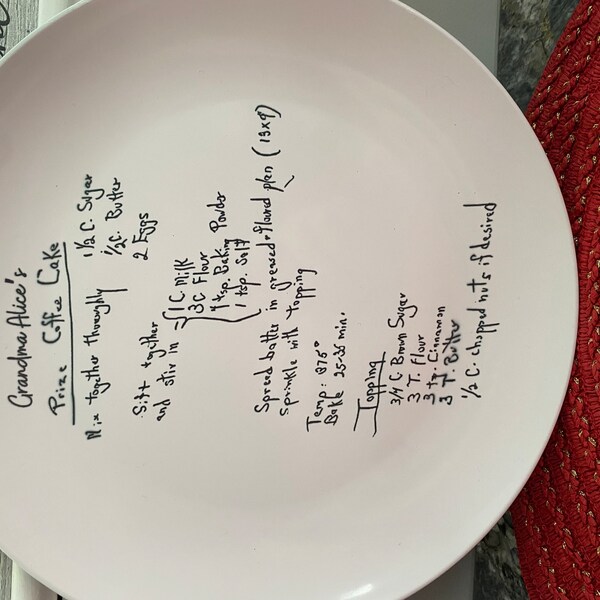 Grandma Alice's
Prize Coffee Cake
Mix together thoroughly
1 1/2 C. Sugar
1/2 C. Butter
2 Eggs
Sift together
and stir in
1 C Milk
3 C Flour
1 tsp. Baking Powder
1 tsp. Salt
Spread batter in greased + floured pan (13x9)
sprinkle with topping
Temp: 375°
Bake 25-35 min.
Topping
3/4 C Brown Sugar
3 T. Flour
3 Cinnamon
3 T. Butter
1/2 C. chopped nuts if desired